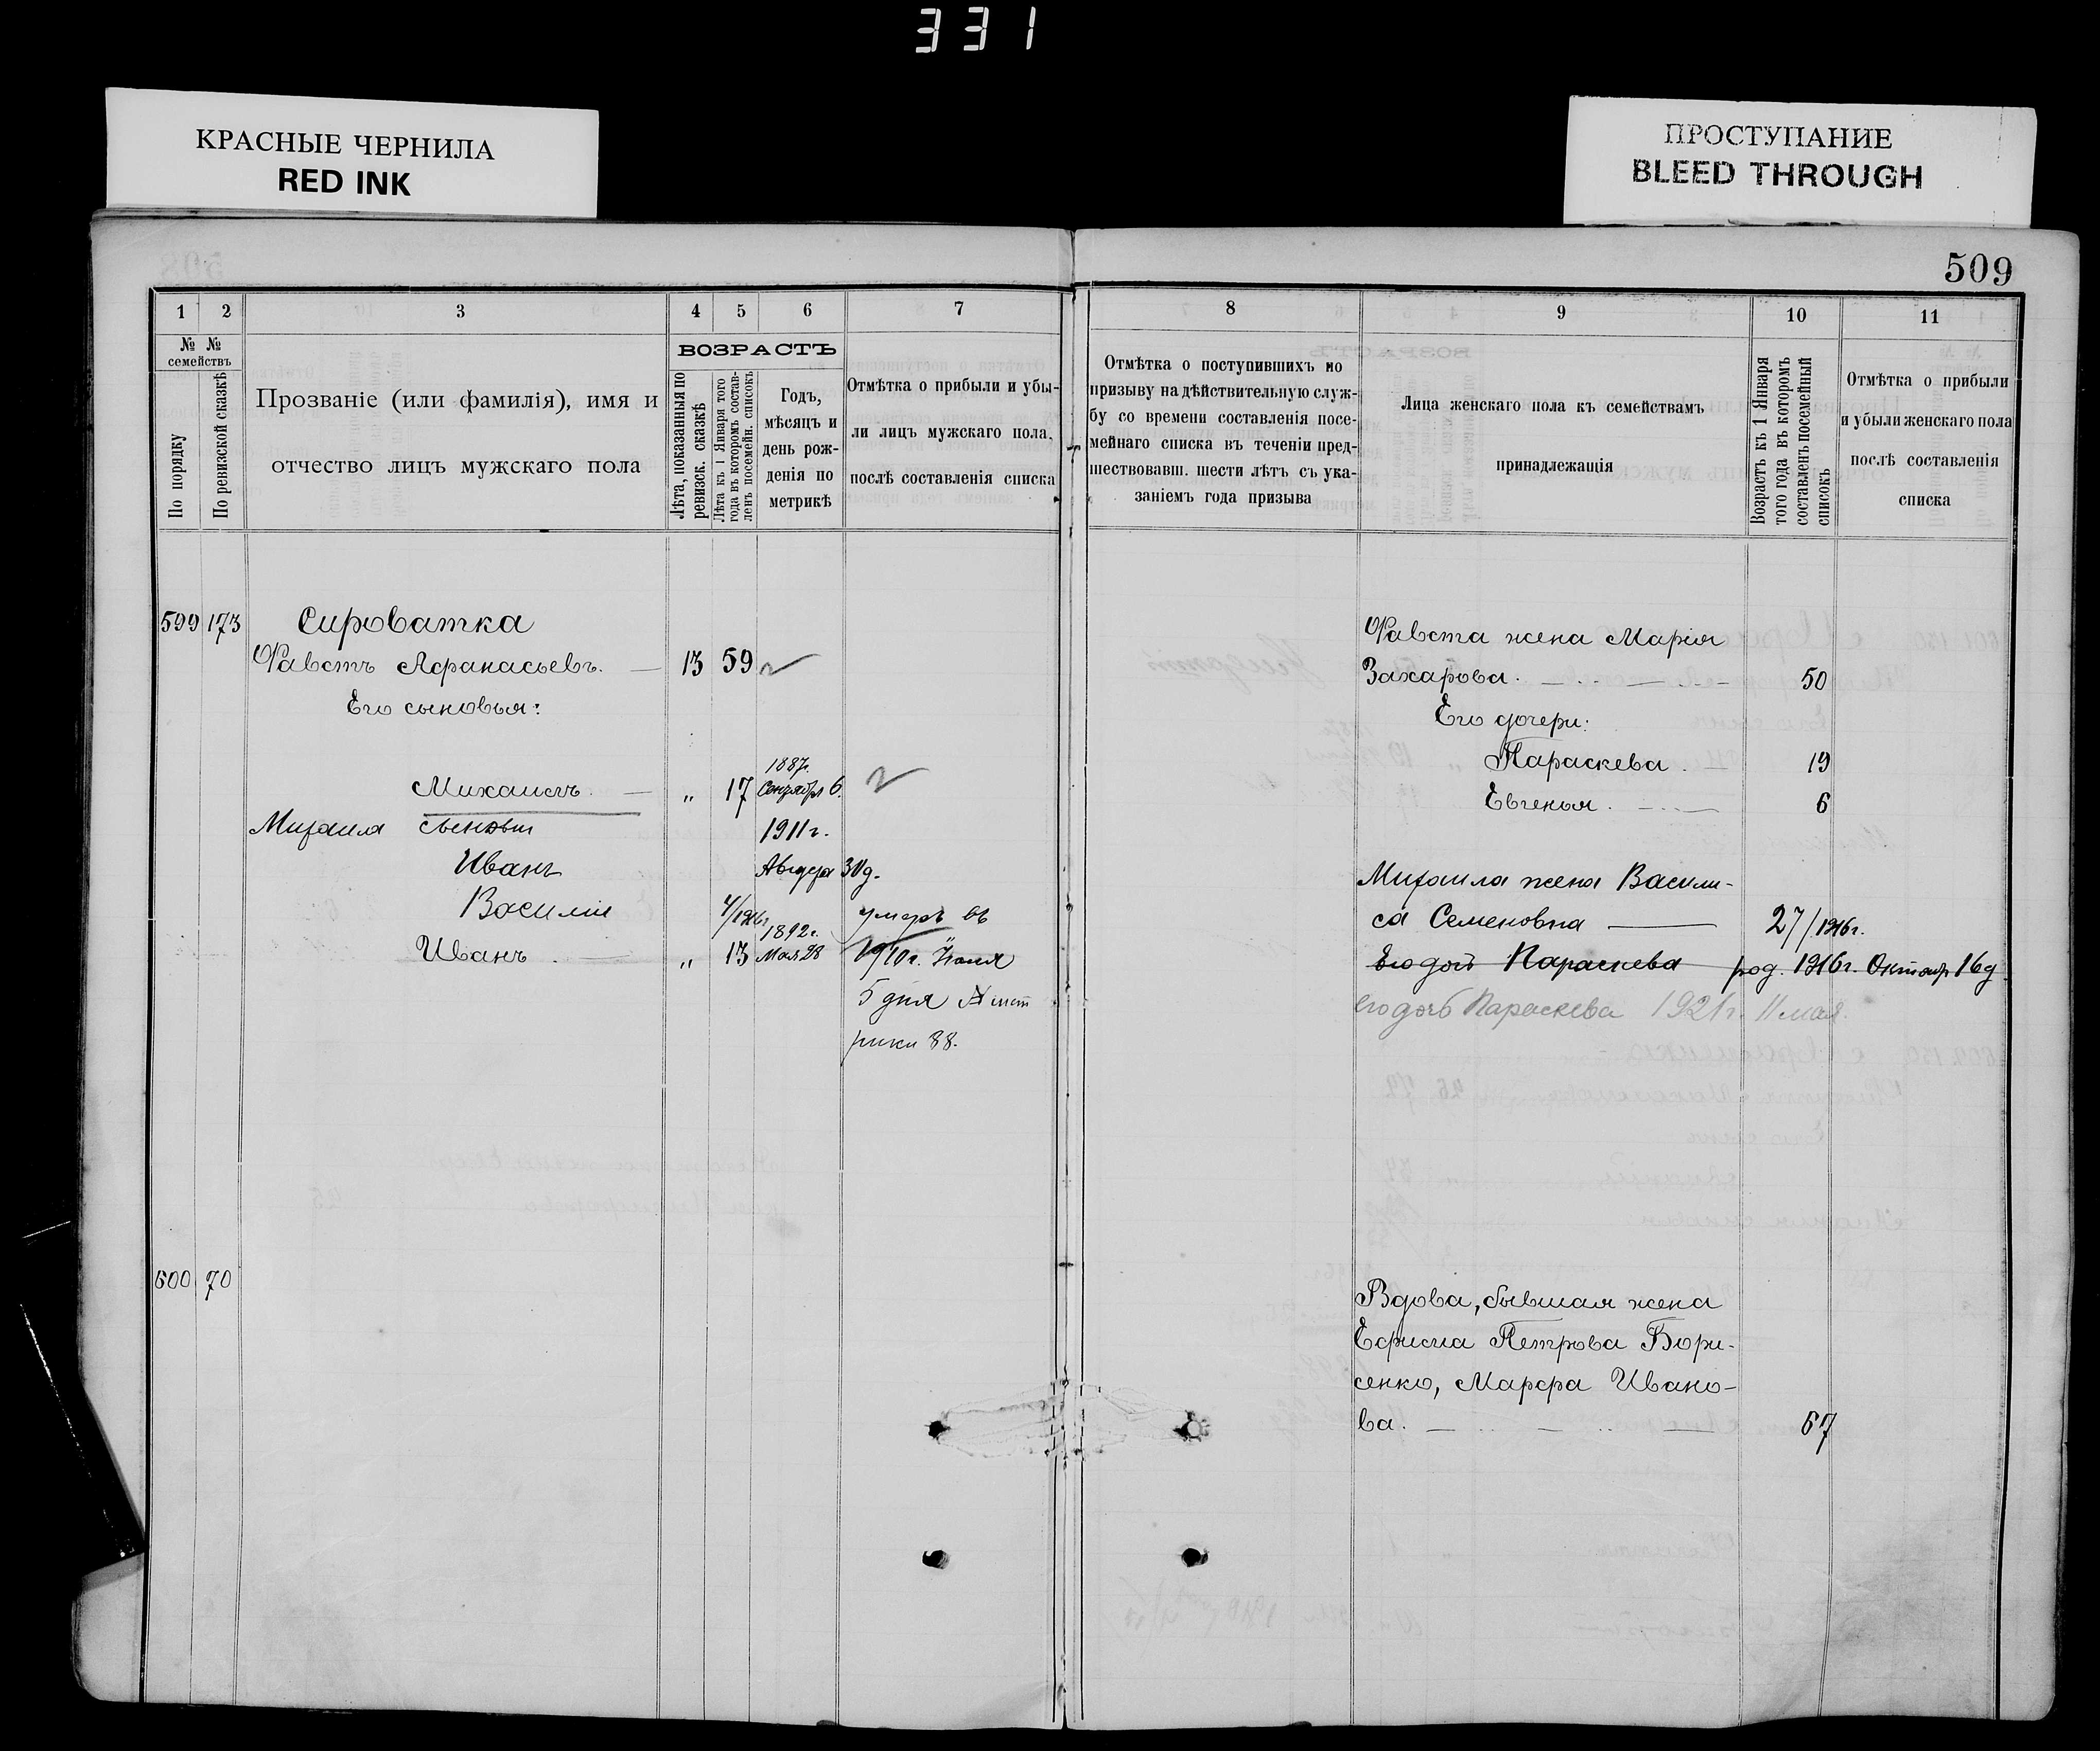 331
КРАСНЫЕ ЧЕРНИЛА
RED INK
ПРОСТУПАНИЕ
BLEED THROUGH
509
1 2 3 4 5 6 7
№ № семействъ
По порядку
По ревизской сказкѣ
Прозваніе (или фамилія), имя и
отчество лицъ мужскаго пола
ВОЗРАСТЪ
Лѣта, показанныя по
ревизск. сказкѣ
Лѣта къ 1 Января того
года въ которомъ состав-
ленъ посемейн. списокъ
Годъ,
мѣсяцъ и
день рож-
денія по
метрикѣ
Отмѣтка о прибыли и убы-
ли лицъ мужскаго пола,
послѣ составленія списка
599 173 Сироватка
Фавстъ Афанасьевъ. 13 59
Его сыновья:
1887г.
Михаилъ. „ 17 Сентября 6.
Михаила сыновья 1911г.
Иванъ Августа 30д.
Василій 4/1916г умеръ въ
1892г.
Иванъ. „ 13 Мая 28 1910г. Іюля
5 дня № мет
рики 88.
600 70
8 9 10 11
Отмѣтка о поступившихъ по
призыву на дѣйствительную служ-
бу со времени составленія посе-
мейнаго списка въ теченіи пред-
шествовавш. шести лѣтъ съ ука-
заніемъ года призыва
Лица женскаго пола къ семействамъ
принадлежащія
Возрастъ къ 1 Января
того года въ которомъ
составленъ посемейный
списокъ
Отмѣтка о прибыли
и убыли женскаго пола
послѣ составленія
списка
Фавста жена Марія
Захарова. 50
Его дочери:
Параскева. 19
Евгенья. 6
Михаила жена Васили-
са Семеновна 27/1916г.
Его доч Параскева род. 1916г. Октябр 16д
его дочь Параскева 1921г. 11 мая.
Вдова, бывшая жена
Ефима Петрова Бори-
сенко, Марфа Ивано-
ва. 67